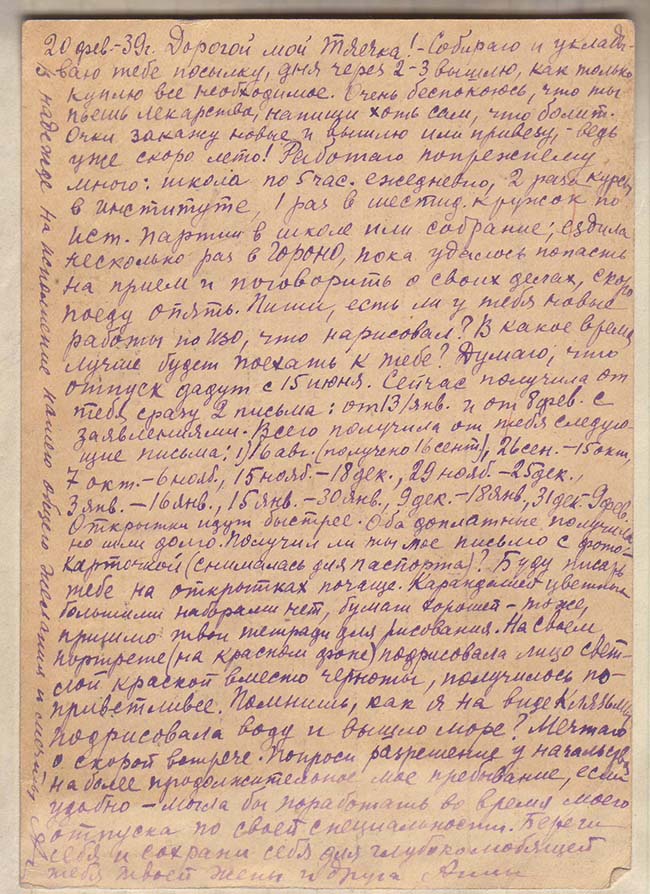 20 фев-39г. Дорогой мой Тяечка! - Собираю и уклады-
ваю тебе посылку, дня через 2-3 вышлю, как только
куплю все необходимое. Очень беспокоюсь, что ты
пьешь лекарства, напиши хоть сам, что болит.
Очки закажу новые и вышлю или привезу, - ведь
уже скоро лето! Работаю попрежнему
много: школа по 5 час. ежедневно, 2 раза курсы
в институте, 1 раз в шестид. кружок по
ист. партии в школе или собрание; ездила
несколько раз в ГОРОНО, пока удалось попасть
на прием и поговорить о своих делах, скоро
поеду опять. Пиши, есть ли у тебя новые
работы по ИЗО, что нарисовал? В какое время
лучше будет поехать к тебе? Думаю, что
отпуск дадут с 15 июня. Сейчас получила от
тебя сразу 2 письма: от 13/янв. и от 8 фев. с
заявлениями. Всего получила от тебя следую-
щие письма: 1) 16 авг. (получено 16 сент), 26 сен. - 15 окт,
7 окт. - 6 нояб., 15 нояб. - 18 дек., 29 нояб. - 25 дек.,
3 янв. - 16 янв., 15 янв. - 30 янв., 9 дек. - 18 янв, 31 дек. 9 фев.
Открытки идут быстрее. Оба доплатные получила
но шли долго. Получил ли ты мое письмо с фото-
карточкой (снималась для паспорта)? Буду писать
тебе на открытках почаще. Карандашей цветных
большими наборами нет, бумаги хорошей - тоже,
пришлю твои тетради для рисования. На своем
портрете (на красном фоне) подрисовала лицо свет-
лой краской вместо черноты, получилось по-
приветливее. Помнишь, как я на виде Клязьмы
подрисовала воду и вышло море? Мечтаю
о скорой встрече. Попроси разрешение у начальства
на более продолжительное мое пребывание, если
удобно - могла бы поработать во время моего
отпуска по своей специальности. Береги
себя и сохрани себя для глубоко любящей
тебя твоей жены и друга Анны
в надежде на исполнение нашего общего желания и